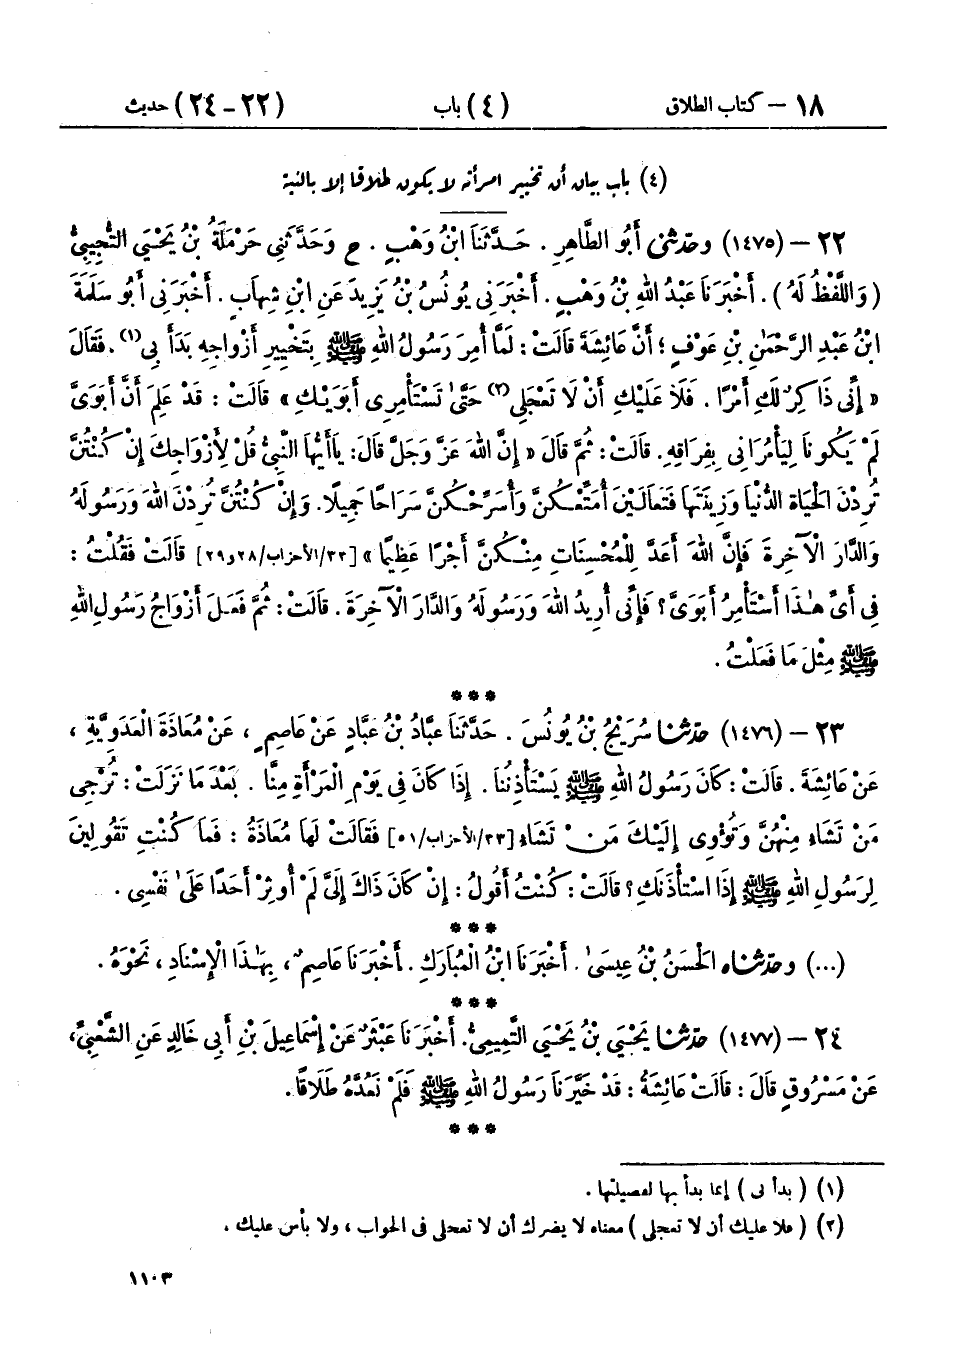 ١٨ – كتاب الطلاق (٤) باب (٢٢ – ٢٤) حديث
(٤) باب بيان أن تخيير امرأته لا يكون طلاقا إلا بالنية
٢٢ – (١٤٧٥) وحدثنى أَبُو الطَّاهِرِ . حَدَّثَنَا ابْنُ وَهْبٍ . ح وَحَدَّثَنِى حَرْمَلَةُ بْنُ يَحْيَى التُّجِيبِىُّ
(وَاللَّفْظُ لَهُ) . أَخْبَرَنَا عَبْدُ اللهِ بْنُ وَهْبٍ . أَخْبَرَنِى يُونُسُ بْنُ يَزِيدَ عَنِ ابْنِ شِهَابٍ . أَخْبَرَنِى أَبُو سَلَمَةَ
ابْنُ عَبْدِ الرَّحْمٰنِ بْنِ عَوْفٍ ؛ أَنَّ عَائِشَةَ قَالَتْ : لَمَّا أُمِرَ رَسُولُ اللهِ ﷺ بِتَخْيِيرِ أَزْوَاجِهِ بَدَأَ بِى(١) . فَقَالَ
« إِنِّى ذَاكِرٌ لَكِ أَمْرًا . فَلَا عَلَيْكِ أَنْ لَا تَعْجَلِى(٢) حَتَّىٰ تَسْتَأْمِرِى أَبَوَيْكِ » قَالَتْ : قَدْ عَلِمَ أَنَّ أَبَوَىَّ
لَمْ يَكُونَا لِيَأْمُرَانِى بِفِرَاقِهِ. قَالَتْ : ثُمَّ قَالَ « إِنَّ اللهَ عَزَّ وَجَلَّ قَالَ: يَاأَيُّهَا النَّبِىُّ قُلْ لِأَزْوَاجِكَ إِنْ كُنْتُنَّ
تُرِدْنَ الْحَيَاةَ الدُّنْيَا وَزِينَتَهَا فَتَعَالَيْنَ أُمَتِّعْكُنَّ وَأُسَرِّحْكُنَّ سَرَاحًا جَمِيلًا. وَإِنْ كُنْتُنَّ تُرِدْنَ اللهَ وَرَسُولَهُ
وَالدَّارَ الْآخِرَةَ فَإِنَّ اللهَ أَعَدَّ لِلْمُحْسِنَاتِ مِنْكُنَّ أَجْرًا عَظِيمًا » [٣٣/الأحزاب/٢٨و٢٩] قَالَتْ فَقُلْتُ :
فِى أَىِّ هٰذَا أَسْتَأْمِرُ أَبَوَىَّ ؟ فَإِنِّى أُرِيدُ اللهَ وَرَسُولَهُ وَالدَّارَ الْآخِرَةَ . قَالَتْ : ثُمَّ فَعَلَ أَزْوَاجُ رَسُولِ اللهِ
ﷺ مِثْلَ مَا فَعَلْتُ .
***
٢٣ – (١٤٧٦) حدثنا سُرَيْجُ بْنُ يُونُسَ . حَدَّثَنَا عَبَّادُ بْنُ عَبَّادٍ عَنْ عَاصِمٍ ، عَنْ مُعَاذَةَ الْعَدَوِيَّةِ ،
عَنْ عَائِشَةَ . قَالَتْ : كَانَ رَسُولُ اللهِ ﷺ يَسْتَأْذِنُنَا . إِذَا كَانَ فِى يَوْمِ الْمَرْأَةِ مِنَّا . بَعْدَ مَا نَزَلَتْ : تُرْجِى
مَنْ تَشَاءُ مِنْهُنَّ وَتُؤْوِى إِلَيْكَ مَنْ تَشَاءُ [٣٣/الأحزاب/٥١] فَقَالَتْ لَهَا مُعَاذَةُ : فَمَا كُنْتِ تَقُولِينَ
لِرَسُولِ اللهِ ﷺ إِذَا اسْتَأْذَنَكِ ؟ قَالَتْ : كُنْتُ أَقُولُ : إِنْ كَانَ ذَاكَ إِلَىَّ لَمْ أُوثِرْ أَحَدًا عَلَىٰ نَفْسِى .
***
(...) وحدثناه الْحَسَنُ بْنُ عِيسَىٰ . أَخْبَرَنَا ابْنُ الْمُبَارَكِ . أَخْبَرَنَا عَاصِمٌ ، بِهٰذَا الْإِسْنَادِ ، نَحْوَهُ .
***
٢٤ – (١٤٧٧) حدثنا يَحْيَىٰ بْنُ يَحْيَى التَّمِيمِىُّ. أَخْبَرَنَا عَبْثَرٌ عَنْ إِسْمَاعِيلَ بْنِ أَبِى خَالِدٍ عَنِ الشَّعْبِىِّ،
عَنْ مَسْرُوقٍ قَالَ : قَالَتْ عَائِشَةُ : قَدْ خَيَّرَنَا رَسُولُ اللهِ ﷺ فَلَمْ نَعُدَّهُ طَلَاقًا.
***
(١) ( بدأ بى ) إنما بدأ بها لفضيلتها .
(٢) ( فلا عليك أن لا تعجلى ) معناه لا يضرك أن لا تعجلى فى الجواب ، ولا بأس عليك .
١١٠٣